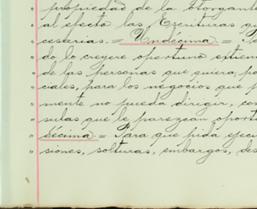 propiedad de la otorgante
al efecto las Escrituras qu
cesarias. = Undécima =
do lo creyere oportuno
de las personas que quiera, pa
ciales, para los negocios que p
mente no pueda dirigir, con
sulas que le parezcan oport
décima = Para que pida ejecu
siones, solturas, embargos, des